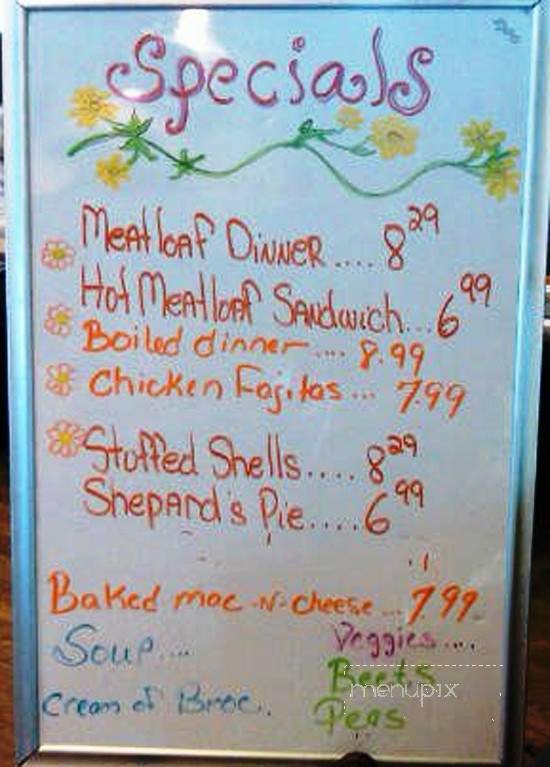 Specials
Meatloaf Dinner .... 8 29
Hot Meatloaf Sandwich... 6 99
Boiled dinner .... 8.99
Chicken Fajitas ... 7.99
Stuffed Shells.... 8 29
Shepard's Pie.... 6 99
Baked mac -N- cheese ... 7.99
Soup....
Veggies....
Beets
menupix
Cream of Broc.
Peas